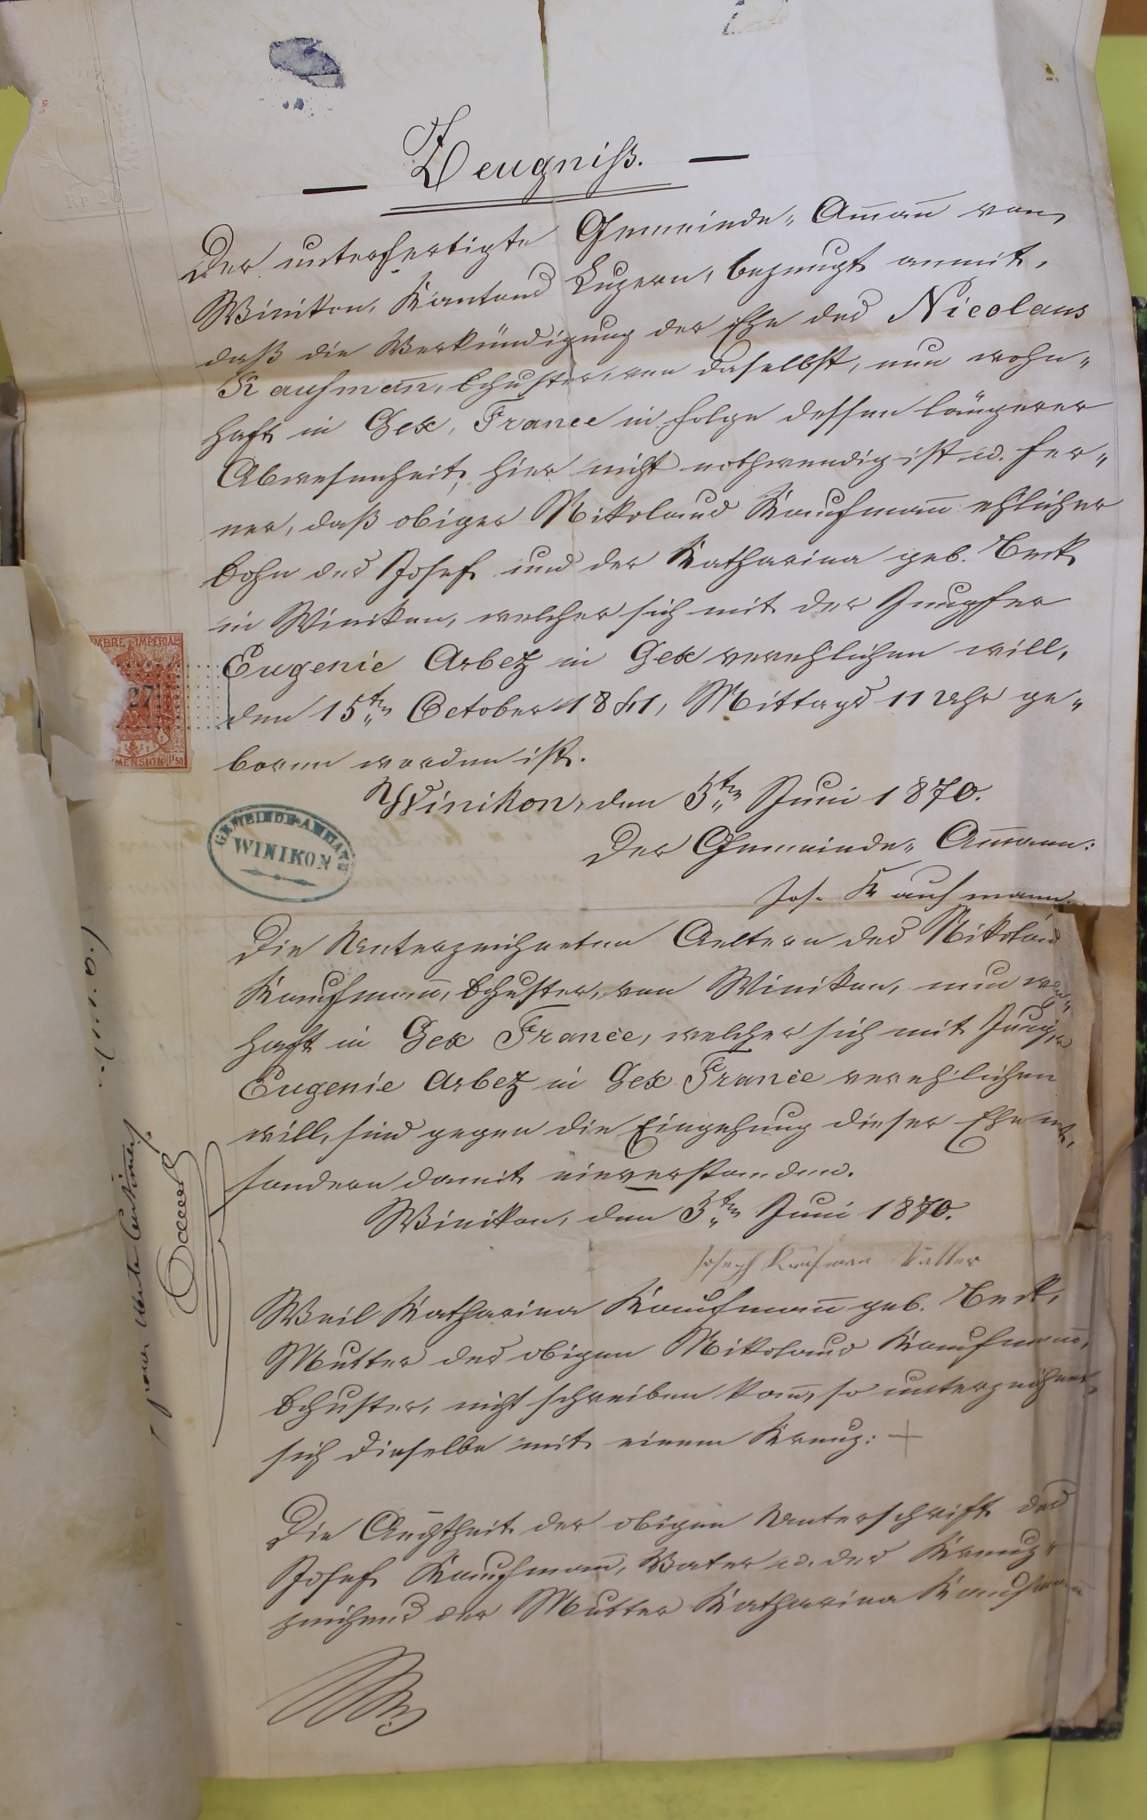 Zeugniß.
Der unterfertigte Gemeinde-Am̅an̅ von
Winikon, Kantons Luzern, bezeugt anmit,
daß die Verkündigung der Ehe des Nicolaus
Kaufman̅, Schuster, von daselbst, nun wohn-
haft in Gex, France in Folge dessen längerer
Abwesenheit, hier nicht nothwendig ist u. fer-
ner, daß obiger Nikolaus Kaufman̅ ehlicher
Sohn des Josef und der Katharina geb. Beck
in Winikon, welcher sich mit der Jungfer
Eugenie Arbez in Gex verehlichen will,
den 15ten October 1841, Mittags 11 Uhr ge-
boren worden ist.
Winikon, den 3ten Juni 1870.
Der Gemeinde-Am̅ann:
Jos. Kaufmann.
GEMEINDE-AMMANN
WINIKON
TIMBRE IMPERIAL
27
DIMENSION
Die Unterzeichneten Aeltern des Nikolaus
Kaufman̅, Schuster, von Winikon, nun
haft in Gex France, welcher sich mit
Eugenie Arbez in Gex France verehlichen
will, sind gegen die Eingehung dieser Ehe
sondern damit einverstanden.
Winikon, den 3ten Juni 1870.
Joseph Kaufman Vatter
Weil Katharina Kaufman̅ geb. Beck,
Mutter des obigen Nikolaus Kaufman̅,
Schuster, nicht schreiben kan̅, so unterzeichnet
sich dieselbe mit einem Kreuz: +
Die Aechtheit der obigen Unterschrift des
Josef Kaufman̅, Vater u. des Kreuz-
zeichens der Mutter Katharina Kaufman̅